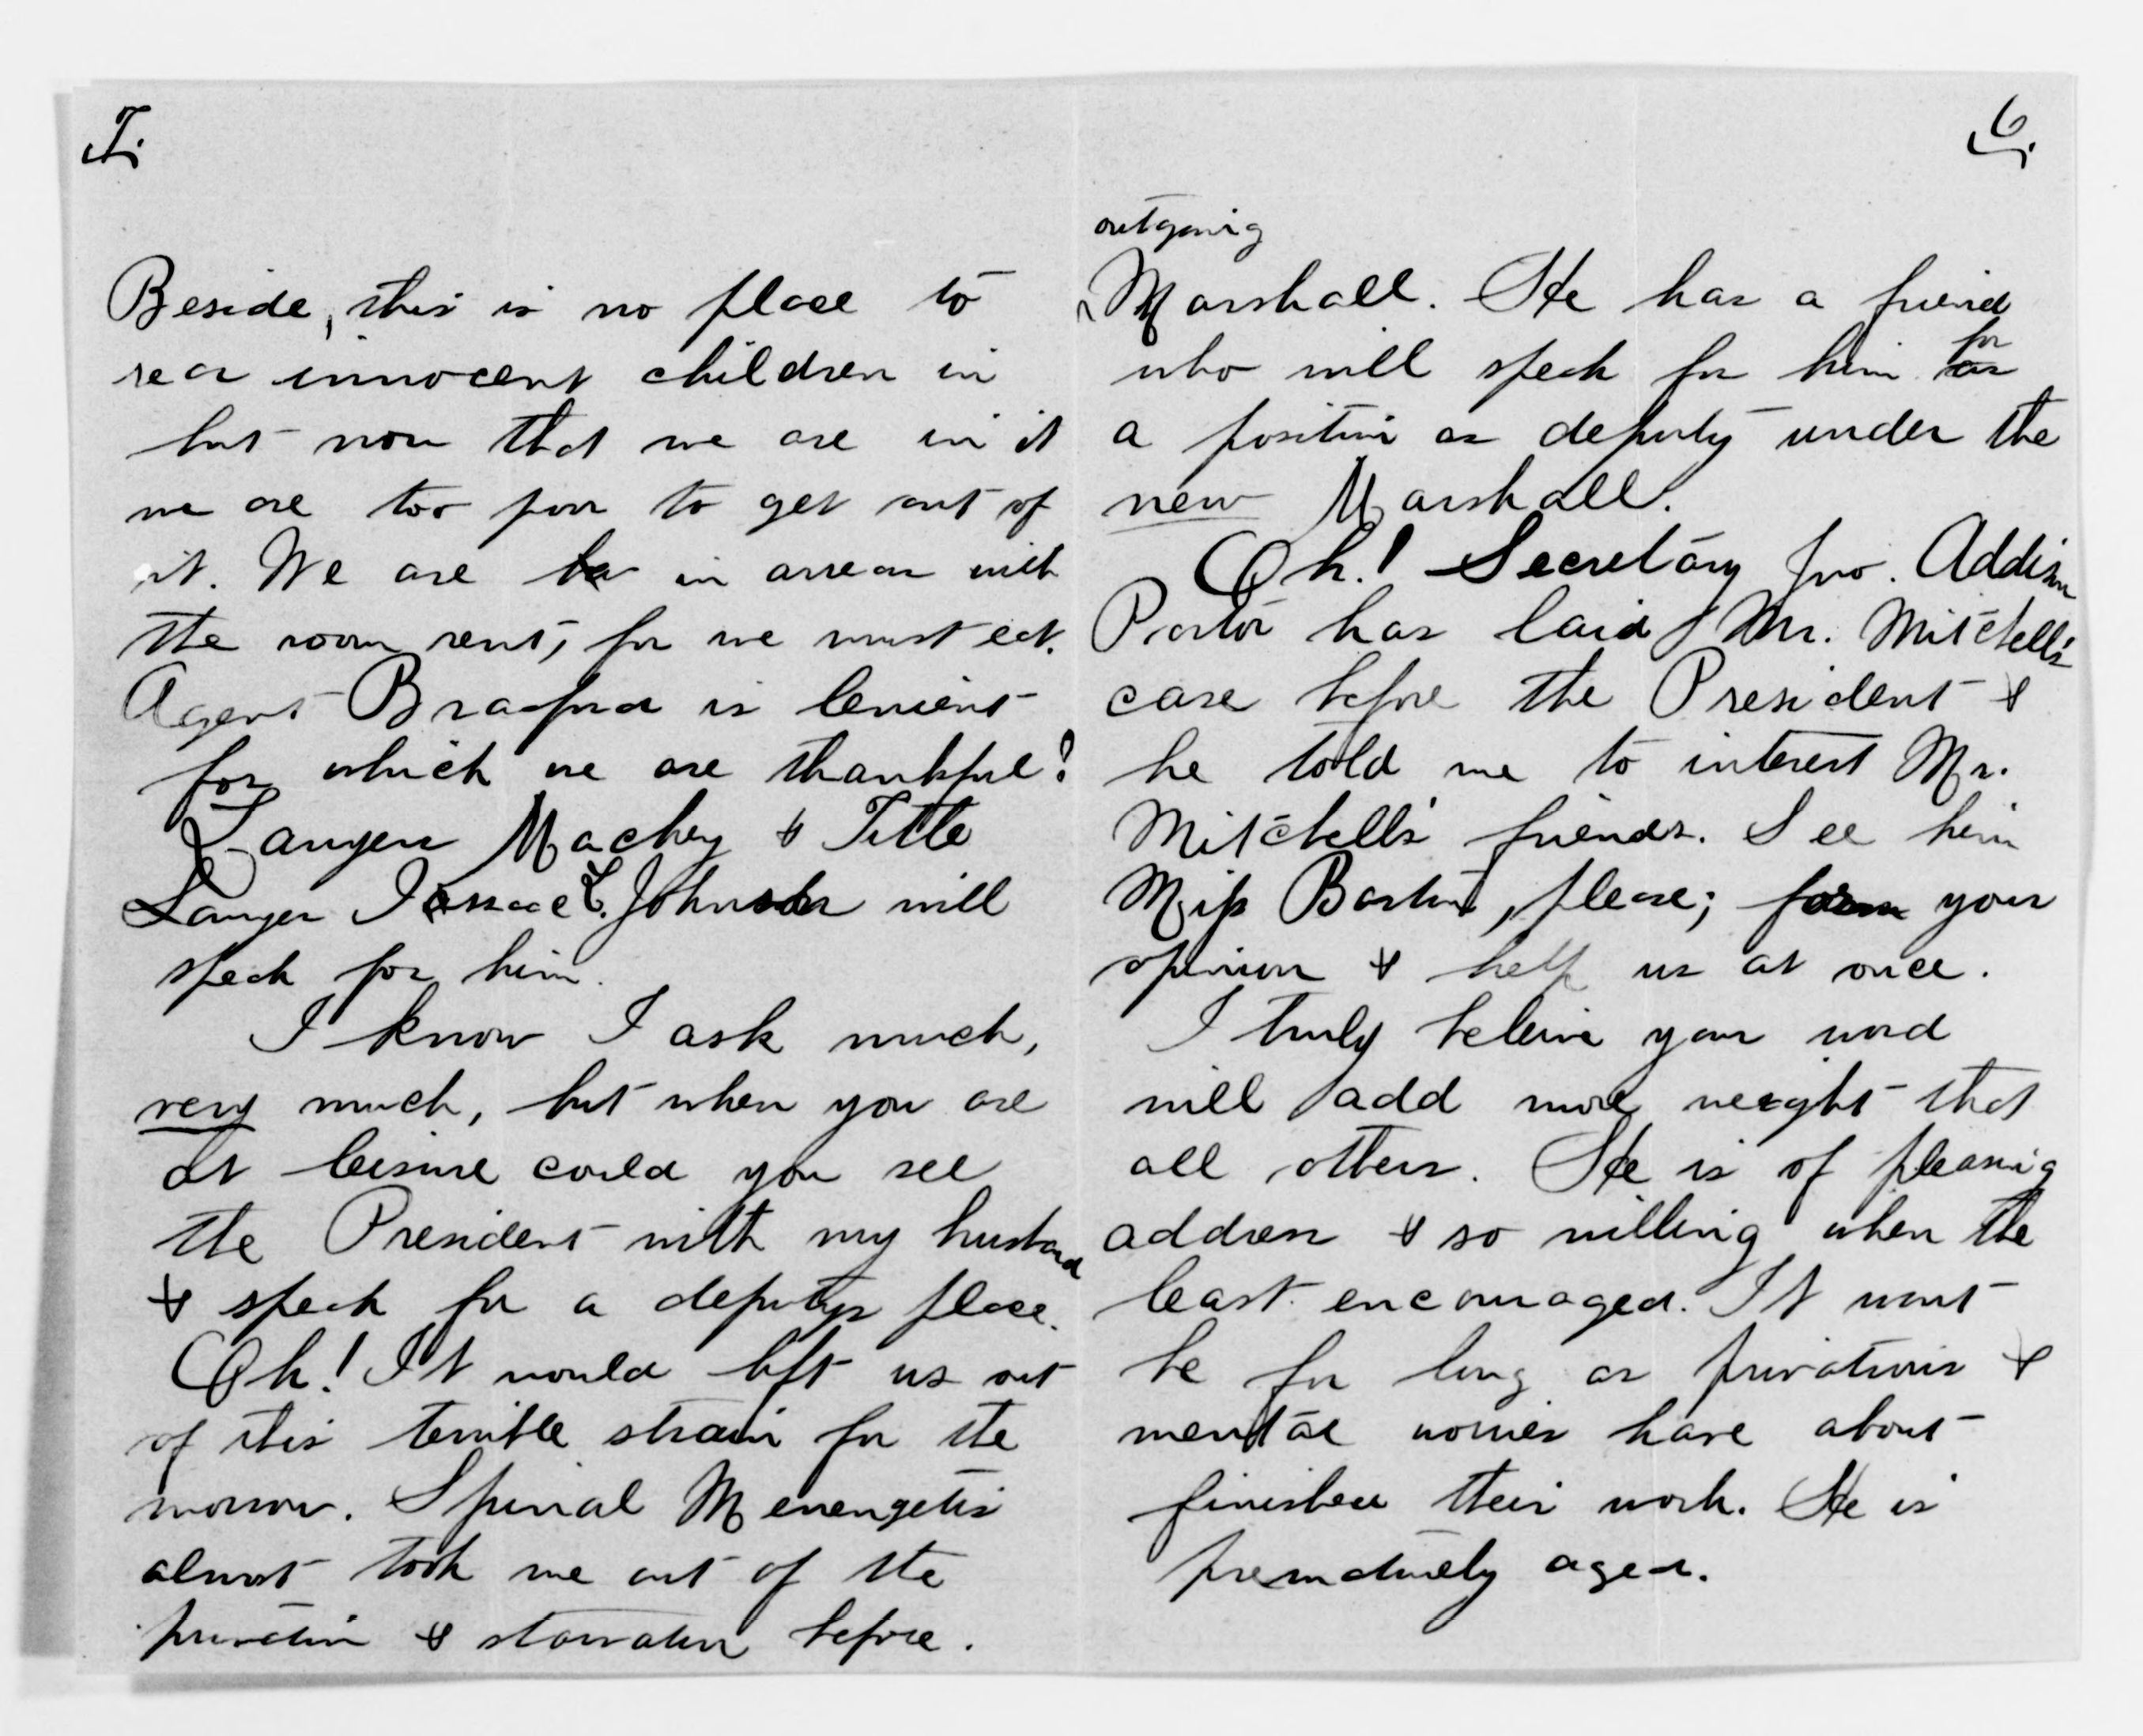 7.
Beside, this is no place to
rear innocent children in
but now that we are in it
we are too poor to get out of
it. We are in arrears with
the room rent, for we must eat.
Agent Bradford is lenient
for which we are thankful!
Lawyers Mackey & Tittle
Lawyer Issace L. Johnson will
speak for him.
I know I ask much,
very much, but when you are
at leisure could you see
the President with my husband
& speak for a deputys place.
Oh! It would lift us out
of this terrible strain for the
morrow. Spinal Menengetis
almost took me out of the
privation & starvation before.
6.
outgoing
Marshall. He has a friend
who will speak for him for
a position as deputy under the
new Marshall.
Oh! Secretary Jno. Addison
Porter has laid Mr. Mitchell's
case before the President &
he told me to interest Mr.
Mitchell's friends. See him
Miss Barton, please; form your
opinion & help us at once.
I truly beleive your word
will add more weight that
all others. He is of pleasing
address & so willing when the
least encouraged. It wont
be for long as privations &
mental worries have about
finished their work. He is
prematurely aged.